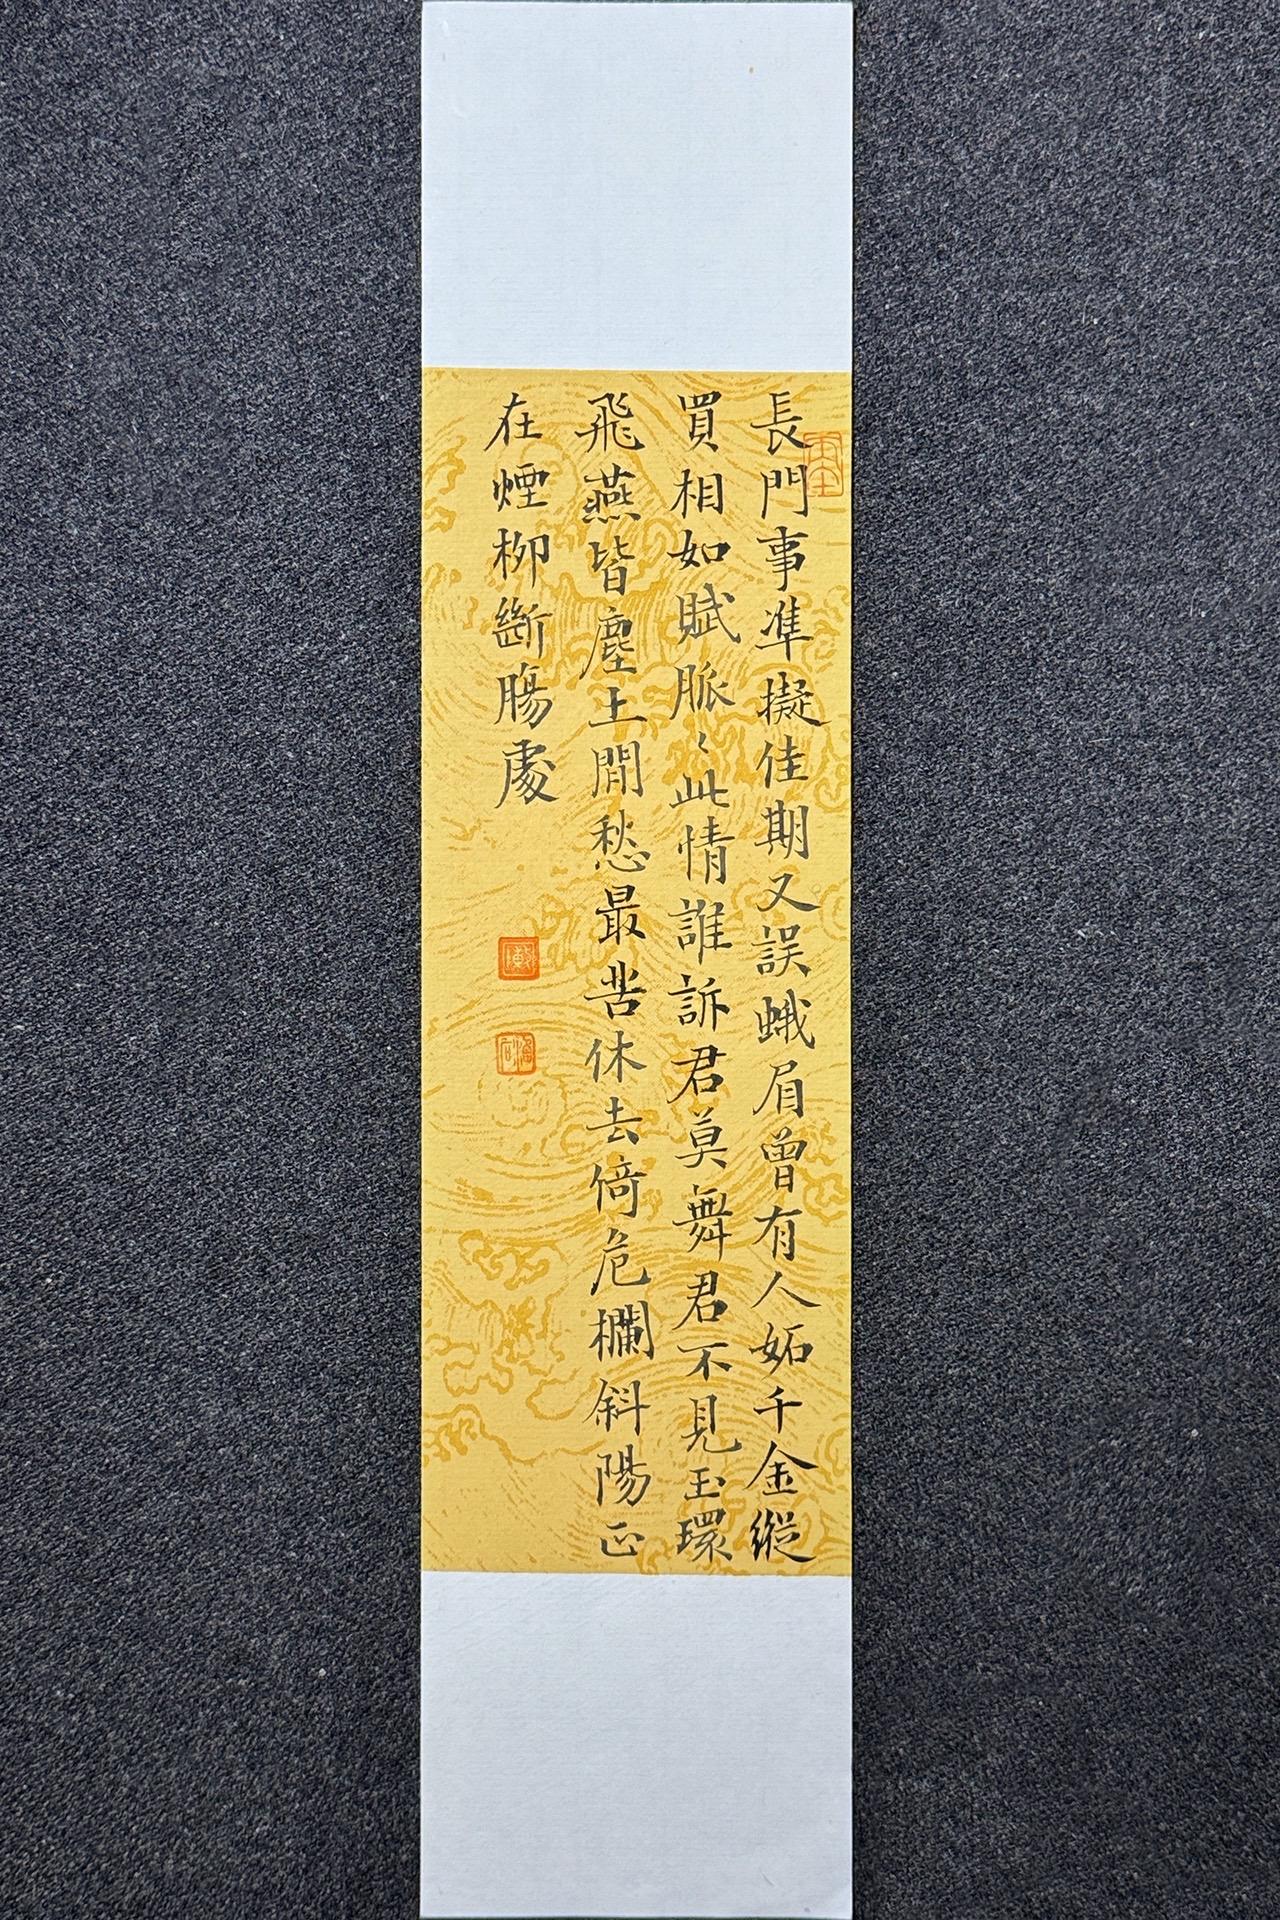 長門事準擬佳期又誤蛾眉曾有人妬千金縱
買相如賦脈〻此情誰訴君莫舞君不見玉環
飛燕皆塵土閒愁最苦休去倚危欄斜陽正
在煙栁斷腸處